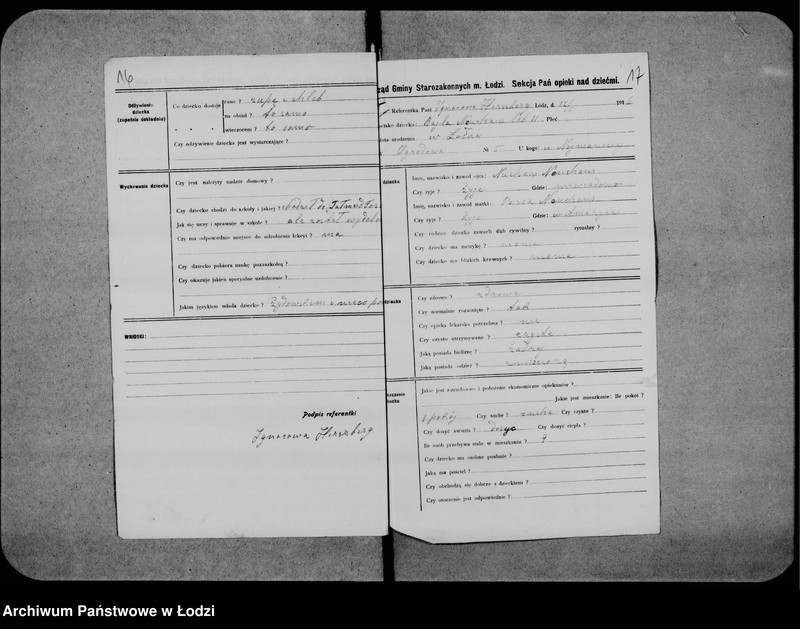 16
Odżywienie dziecka (zupełnie dokładnie)
Co dziecko dostaje rano? zupę i chleb
na obiad? to samo
wieczorem? to samo
Czy odżywienie dziecka jest wystarczające?
Wychowanie dziecka
Czy jest należyty nadzór domowy?
Czy dziecko chodzi do szkoły i jakiej?
Jak się uczy i sprawuje w szkole?
Czy ma odpowiednie miejsce do odrobienia lekcyi? ma
Czy dziecko pobiera naukę pozaszkolną?
Czy okazuje jakieś specyalne uzdolnienie?
Jakim językiem włada dziecko? Żydowskim i nieco po
WNIOSKI:
Podpis referentki
Ignacowa Hirszberg
17
ząd Gminy Starozakonnych m. Łodzi. Sekcja Pań opieki nad dziećmi.
Referentka Pani Ignacowa Hirszberg Łódź, d. 191
wisko dziecka: Bajla Płeć
ata urodzenia w Łodzi
Ogrodowa № 5 U kogo:
dziecka
Imię, nazwisko i zawód ojca:
Czy żyje? żyje Gdzie: niewiadomo
Imię, nazwisko i zawód matki:
Czy żyje? żyje Gdzie: w Ameryce
Czy rodzice dziecka zawarli ślub cywilny? rytualny?
Czy dziecko ma metrykę? niema
Czy dziecko ma bliskich krewnych? niema
dziecka
Czy zdrowe? zdrowe
Czy normalnie rozwinięte? tak
Czy opieka lekarska potrzebna? nie
Czy czysto utrzymywane? czysto
Jaką posiada bieliznę?
Jaką posiada odzież?
Jakie jest zatrudnienie i położenie ekonomiczne opiekunów?
Jakie jest mieszkanie: Ile pokoi?
1 pokój Czy suche? suche Czy czyste?
Czy dosyć światła? dosyć Czy dosyć ciepła?
Ile osób przebywa stale w mieszkaniu? 9
Czy dziecko ma osobne posłanie?
Jaką ma pościel?
Czy obchodzą się dobrze z dzieckiem?
Czy otoczenie jest odpowiednie?
Archiwum Państwowe w Łodzi